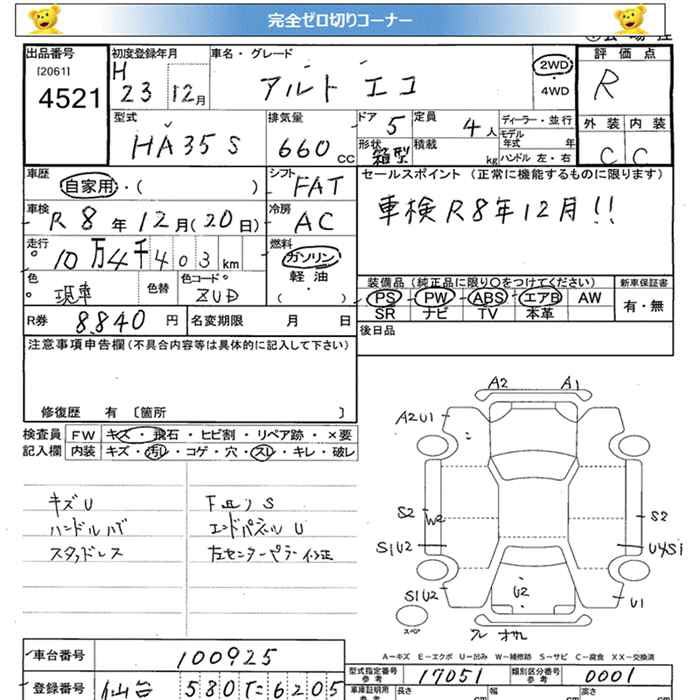 完全ゼロ切りコーナー
出品番号 [2061] 4521
初度登録年月 H 23 12月
車名・グレード アルト エコ
2WD ・ 4WD
評価点 R
外装 内装
C C
型式 HA35S
排気量 660 cc
ドア 5
定員 4人
形状 箱型
積載 kg
ディーラー・並行
モデル年式 年
ハンドル 左・右
車歴 自家用・( )
シフト FAT
車検 R8年12月(20日)
冷房 AC
走行 10万4千403km
燃料 ガソリン 軽油 ( )
色 現車 色替
色コード ZUD
セールスポイント (正常に機能するものに限ります)
車検R8年12月!!
装備品 (純正品に限り〇をつけてください)
新車保証書
PS・PW・ABS・エアB AW
SR ナビ TV 本革
有・無
R券 8,840円
名変期限 月 日
後日品
注意事項申告欄(不具合内容等は具体的に記入して下さい)
修復歴 有 〔箇所 〕
検査員 FW キズ・飛石・ヒビ割・リペア跡・×要
記入欄 内装 キズ・汚レ・コゲ・穴・スレ・キレ・破レ
キズU
スタッドレス
エンドパネルU
A2 A1
A2U1
S2 W2 S2
S1U2 U4S1
S1U2 U2 U1
スペア
A－キズ E－エクボ U－凹み W－補修跡 S－サビ C－腐食 XX－交換済
車台番号 100925
型式指定番号 参考 17051
類別区分番号 参考 0001
登録番号 仙台 580 て 6205
車庫証明用 参考 長さ cm 幅 cm 高さ cm